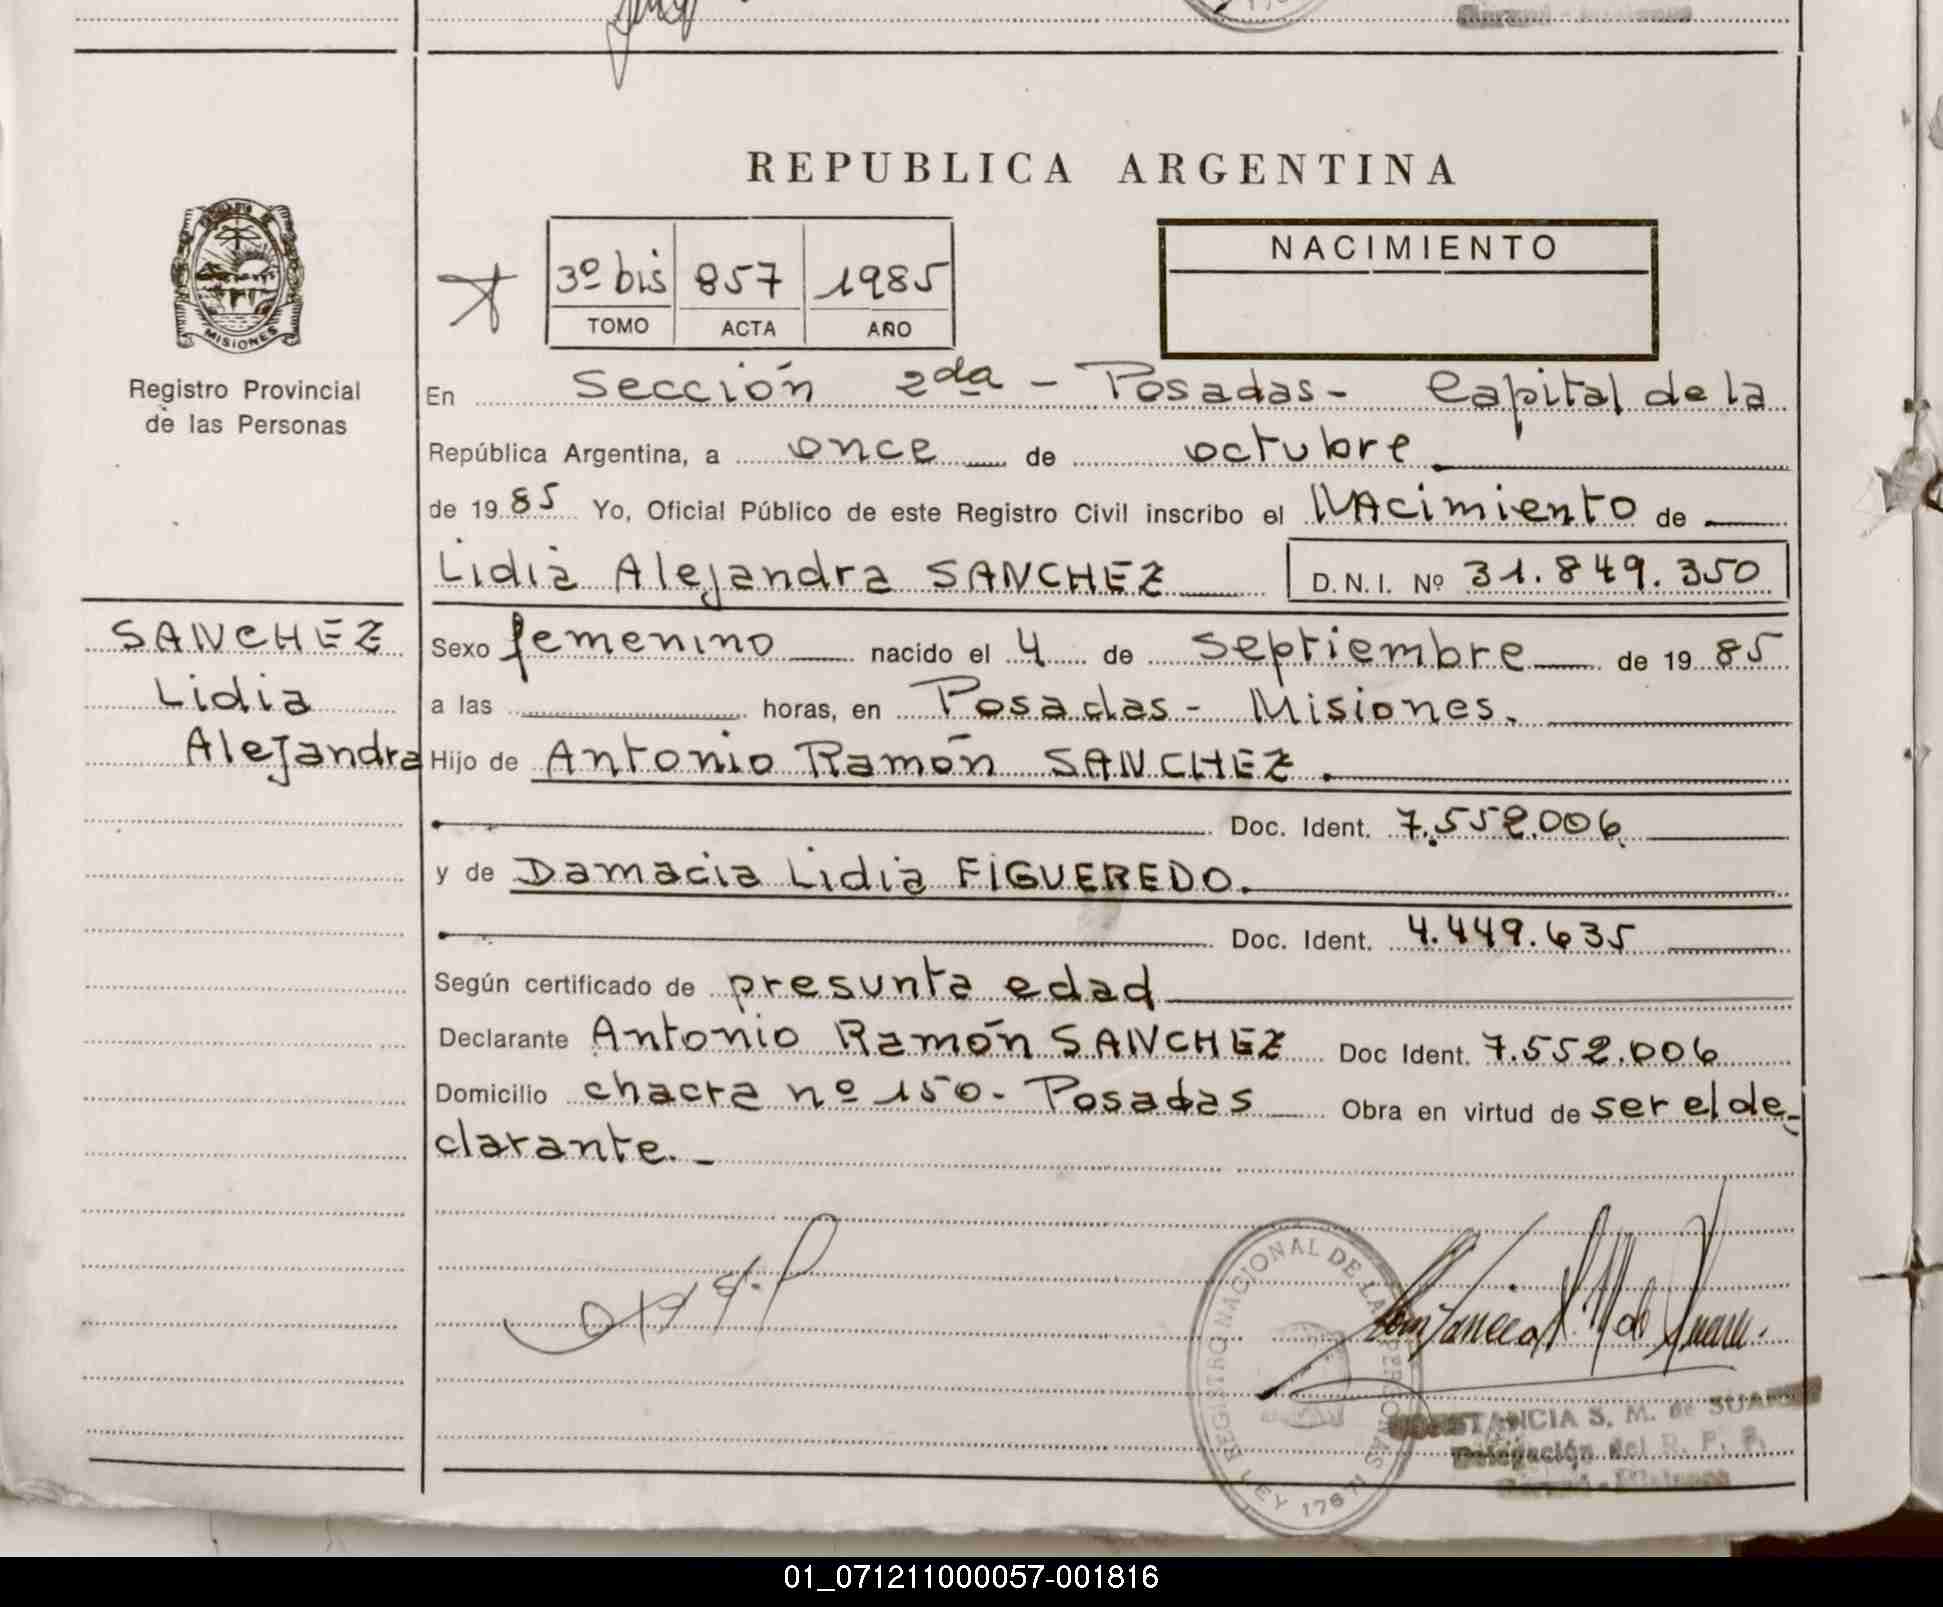 REPUBLICA ARGENTINA
MISIONES
Registro Provincial
de las Personas
3º bis 857 1985
TOMO ACTA AÑO
NACIMIENTO
En Sección 2da - Posadas - Capital de la
República Argentina, a once de octubre
de 1985 Yo, Oficial Público de este Registro Civil inscribo el NAcimiento de
Lidia Alejandra SANCHEZ D.N.I. Nº 31.849.350
SANCHEZ
Lidia
Alejandra
Sexo femenino nacido el 4 de septiembre de 1985
a las horas, en Posadas - Misiones.
Hijo de Antonio Ramón SANCHEZ.
Doc. Ident. 7.552.006
y de Damacia Lidia FIGUEREDO.
Doc. Ident. 4.449.635
Según certificado de presunta edad
Declarante Antonio Ramón SANCHEZ Doc Ident. 7.552.006
Domicilio chacra nº 150 - Posadas Obra en virtud de ser el de-
clarante. -
REGISTRO NACIONAL DE LAS PERSONAS
LEY 17671
CONSTANCIA S. M. de SUAREZ
Delegación del R. P. P.
01_071211000057-001816